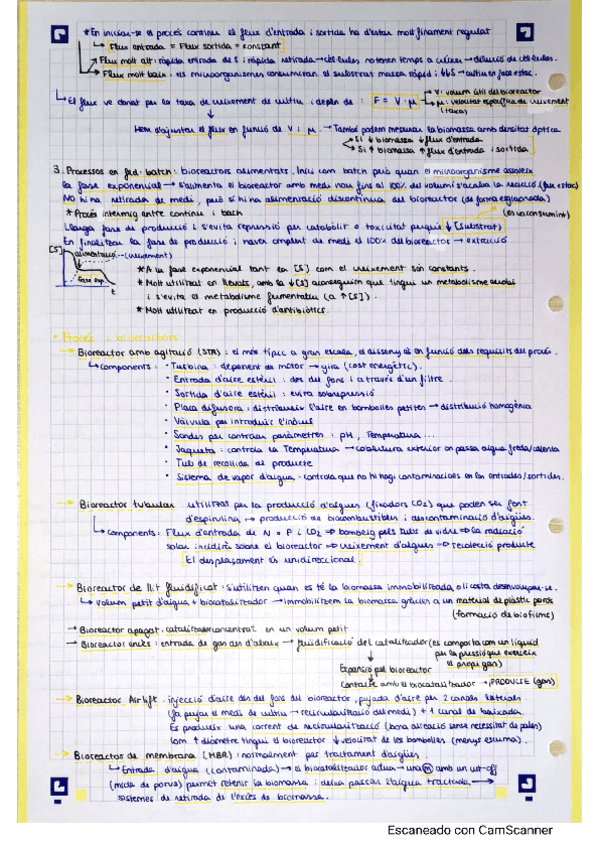 * En iniciar-se el procés continu el flux d'entrada i sortida ha d'estar molt finament regulat
↳ Flux entrada = Flux sortida = constant
Flux molt alt: ràpida entrada de S i ràpida retirada → cèl·lules no tenen temps a créixer → dilució de cèl·lules.
Flux molt baix: els microorganismes consumiran el substrat massa ràpid i → cultiu en fase estac.
↳ El flux ve donat per la taxa de creixement de cultiu i depèn de: F = V·μ
V: volum útil del bioreactor
μ: velocitat específica de creixement (taxa)
Hem d'ajustar el flux en funció de V i μ. → També podem mesurar la biomassa amb densitat òptica
Si ↓ biomassa ↓ flux d'entrada
Si ↑ biomassa ↑ flux d'entrada i sortida
3. Processos en fed-batch: bioreactors alimentats. Inici com batch però quan el microorganisme assoleix
la fase exponencial → s'alimenta el bioreactor amb medi nou fins al 100% del volum i s'acaba la reacció (fase estac)
NO hi ha retirada de medi, però sí hi ha alimentació discontinua del bioreactor (de forma esglaonada)
* Procés intermig entre continu i bach
(es va consumint)
Llarga fase de producció i s'evita repressió per catabòlit o toxicitat perquè ↓ [substrat]
En finalitzar la fase de producció i haver omplert de medi el 100% del bioreactor → extracció
[S] alimentació (creixement)
fase exp.
t
* A la fase exponencial tant la [S] com el creixement són constants.
* Molt utilitzat en llevats, amb la ↓[S] aconseguim que tingui un metabolisme aerobi
i s'evita el metabolisme fermentatiu (a ↑[S]).
* Molt utilitzat en producció d'antibiòtics.
• Procés i bioreactors
→ Bioreactor amb agitació (STR): el més típic a gran escala, el disseny és en funció dels requisits del procés.
↳ Components: • Turbina: depenent de motor → gira (cost energètic).
• Entrada d'aire estèril: des del fons i a través d'un filtre.
• Sortida d'aire estèril: evita sobrepressió
• Placa difusora: distribueix l'aire en bombolles petites → distribució homogènia
• Vàlvula per introduir l'inòcul
• Sondes per controlar paràmetres: pH, Temperatura...
• Jaqueta: controla la Temperatura → cobertura exterior on passa aigua freda/calenta
• Tub de recollida al producte
• Sistema de vapor d'aigua: controla que no hi hagi contaminacions en les entrades/sortides.
→ Bioreactor tubular: utilitzat per la producció d'algues (fixadors CO2) que poden ser font
d'espirulina → producció de biocombustibles i descontaminació d'aigües.
↳ Components: Flux d'entrada de N o P i CO2 ⇒ bombeig pels tubs de vidre ⇒ la radiació
solar incidirà sobre el bioreactor ⇒ creixement d'algues ⇒ recolecció producte
El desplaçament és unidireccional
→ Bioreactor de llit fluidificat: s'utilitzen quan es té la biomassa immobilitzada o li costa desenvolupar-se.
↳ Volum petit d'aigua + biocatalitzador → immobilitzem la biomassa gràcies a un material de plàstic porós
(formació de biofilms)
→ Bioreactor apagat: catalitzador concentrat en un volum petit
→ Bioreactor encès: entrada de gas des d'abaix → fluidificació del catalitzador (es comporta com un líquid
per la pressió que exerceix
el propi gas)
Expansió pel bioreactor
Contacte amb el biocatalitzador → PRODUCTE (gas)
→ Bioreactor Airlift: injecció d'aire des del fons del bioreactor, pujada d'aire per 2 canals laterals
(fa pujar el medi de cultiu → recircularització del medi) + 1 canal de baixada.
Es produeix una corrent de recircularització (bona aireació sense necessitat de pales)
Com ↑ diàmetre tingui el bioreactor ↓ velocitat de les bombolles (menys escuma).
→ Bioreactor de membrana (MBR): normalment per tractament d'aigües
↳ Entrada d'aigua (contaminada) → el biocatalitzador actua → una m amb un cut-off
(mida de porus) permet retenir la biomassa i deixa passar l'aigua tractada
sistemes de retirada de l'excés de biomassa.
Escaneado con CamScanner